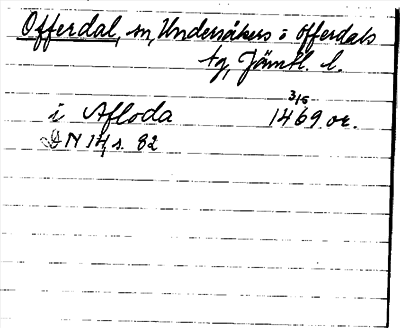 Offerdal, sn, Undersåkers o Offerdals
tg, Jämtl. l.
i Afloda 3/5 1469 or.
DN 14, s. 82